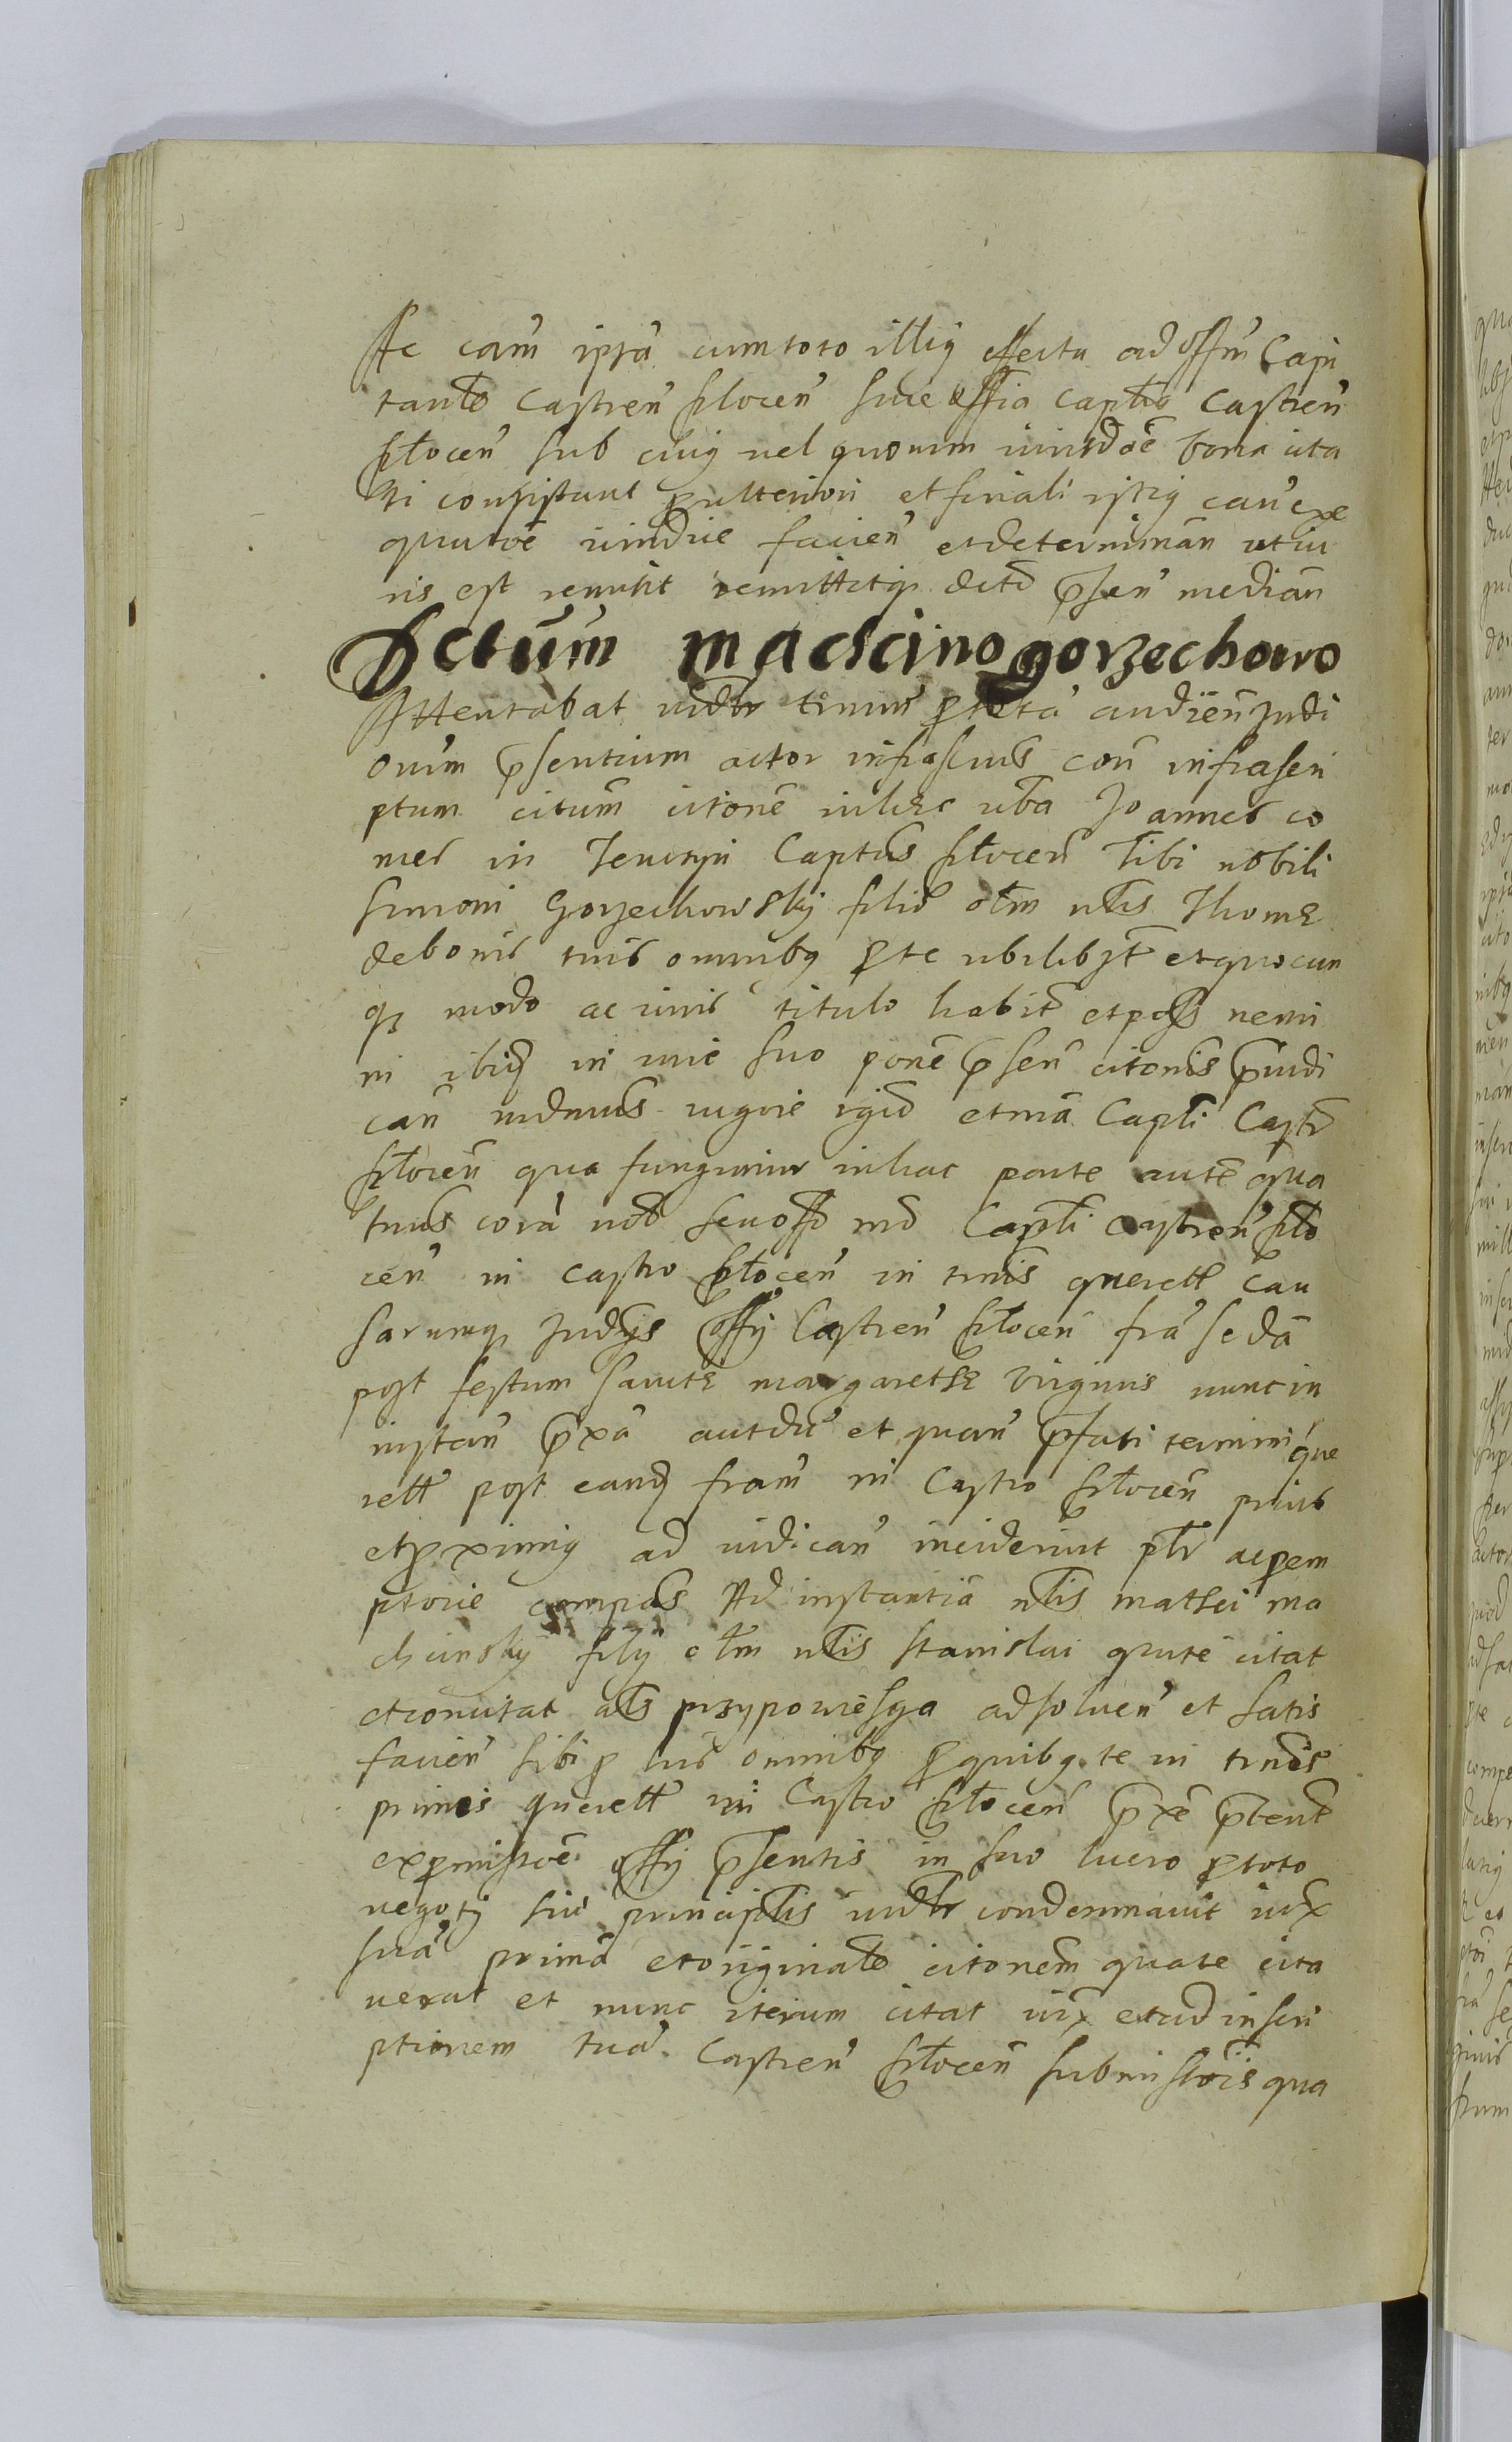 Ac cam̃ ipsã cum toto illig effectu ad offm̃ Capi
taneo Castren̄ plocen̄ sive offia capt̃o Castren̄
plocen̄ sub cuig vel quorum iurisdõe bona cita
ti consistunt p ulteriori et finali istig cau exe
qutõe iuridice facien̄ et determinan̄ uti iu
ris est remisit remittitq decto p̄sen̄ median̄
Actum machcino gorzechowo
Attentabat uidtr tminũ p totã audien̄ Judi
orum p̄sentium actor infrascrus con̄ infrascri
ptum citum̃ citonẽ in hec uba Joannes co
mes in Tenczyn Captus plocen̄ Tibi nobili
Simoni Gorzechowsky filio olm nlis Thome
de bonis tuis omnibg p te ubilibet et quocun
q modo ac iuris titulo habit et poss nemi
ni ibid in iure suo ponẽ p̄sen̄ citonis p̄iudi
can̄ mdmus vigore rgio et mã Capti Castr
plocen̄ qua fungimur in hac parte autẽ qua
tnus corã nob seu offo nrõ Capti castren̄ plo
cen̄ in castro plocen̄ in tnis querell cau
sarumq Judys offy Castren̄ plocen̄ fra se dã
post festum sancte margarethe virginis nunc in
instan̄ p̄xã aut du et quan̄ p̄fati termini que
rell post eand fram̃ in Castro plocen̄ prius
et pximig ad iudican̄ inciderint ptr ac pem
ptorie compas Ad instantiã nlis mathei ma
chcinsky fily olm nlis stanislai qui te citat
et conuitat als przypowiesga ad soluen̄ et satis
facien̄ sibi p luis omnibg p quibg te in tnis
primis querell in Castro plocen̄ p̄xe p̄terit
ex pmissõe offy p̄sentis in suo lucro p toto
negoty siu principlis uidtr condemnauit iux
suã primã et originale citonem̃ qua te cita
uerat et nunc iterum citat iux et ad inscri
ptionem tuã Castren̄ plocen̄ submissõis qua